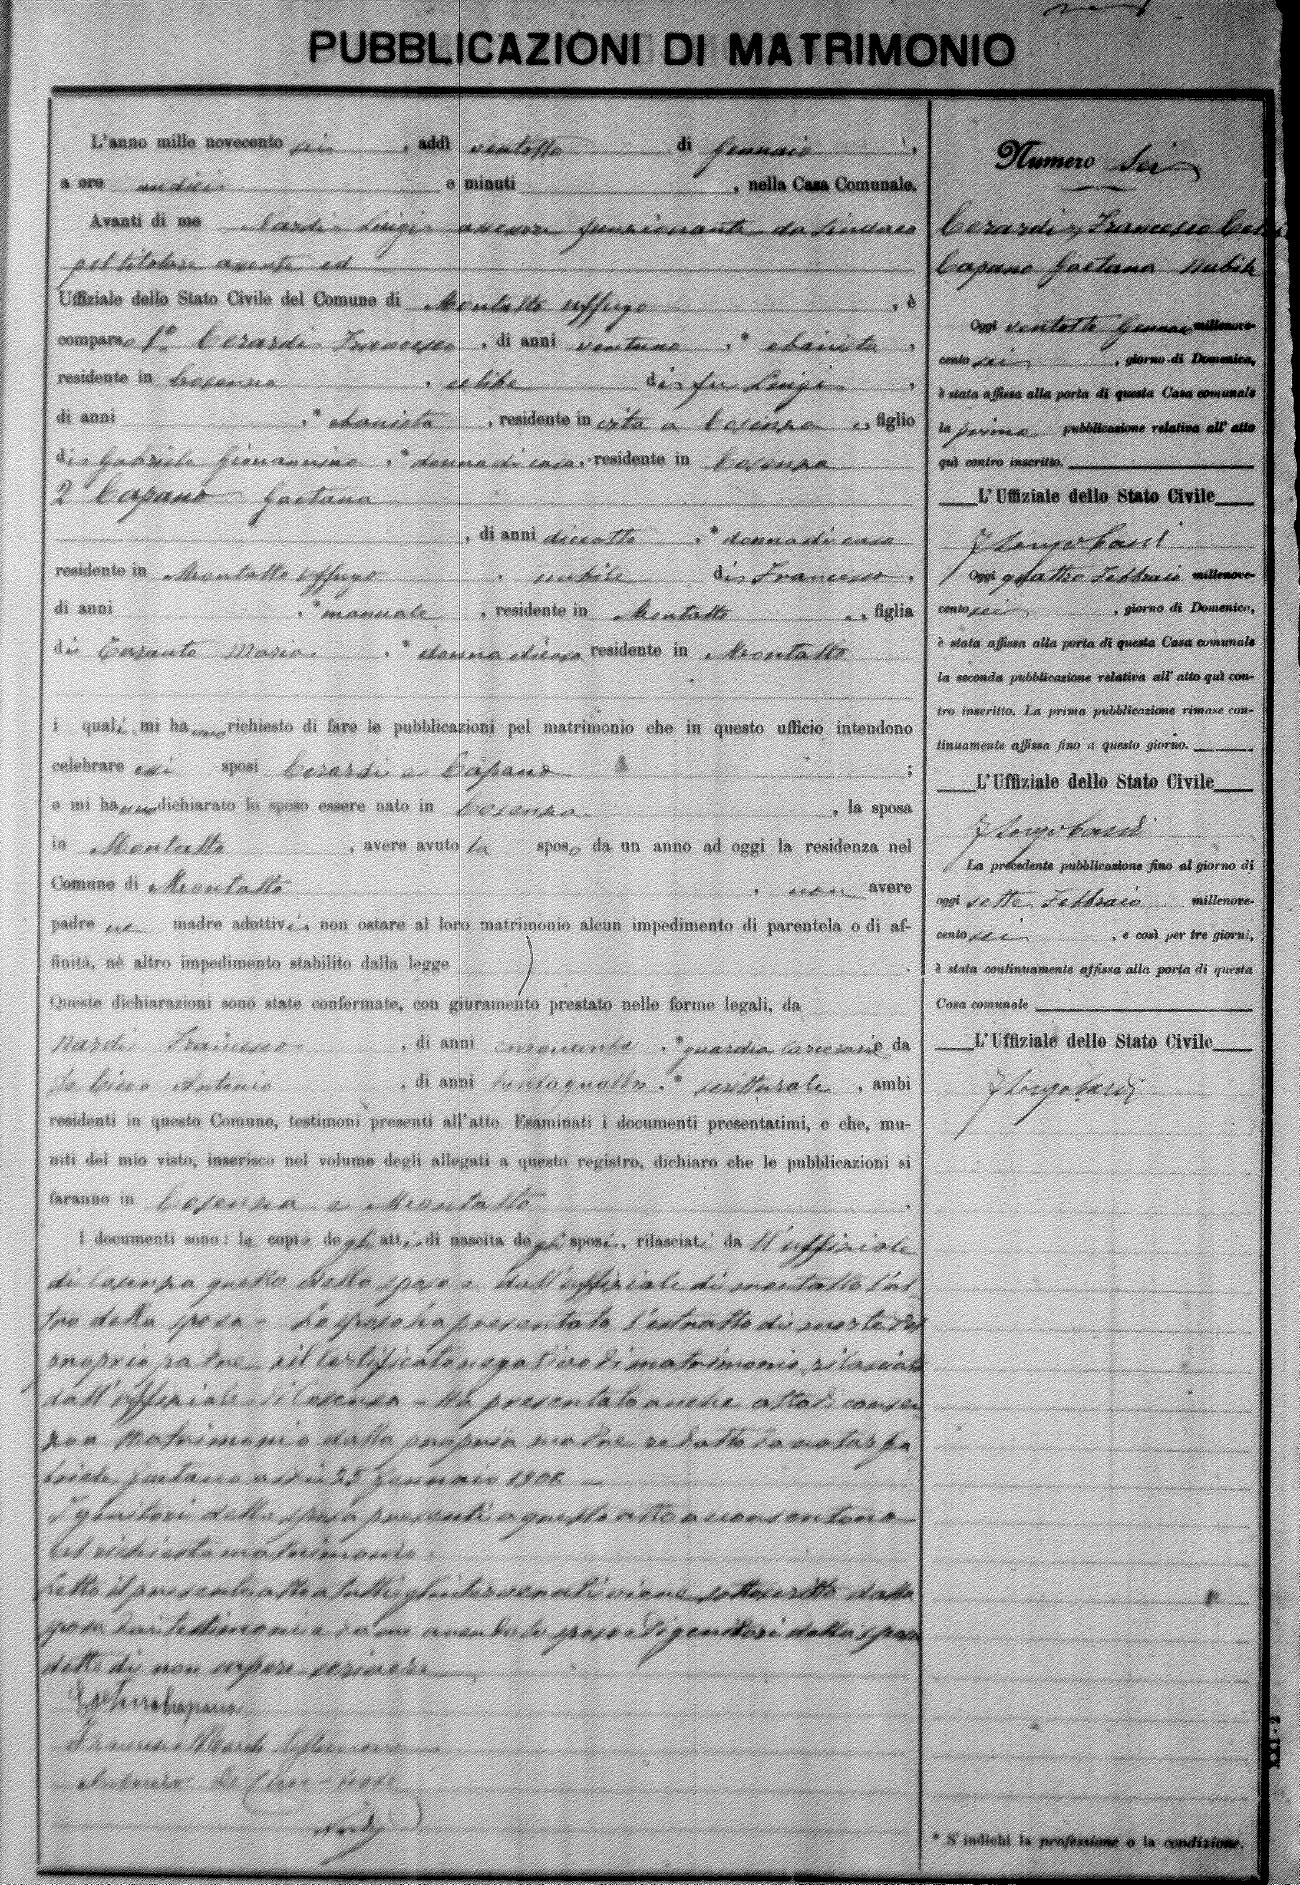 PUBBLICAZIONI DI MATRIMONIO
L'anno mille novecento sei, addì ventotto di Gennaio,
a ore undici e minuti , nella Casa Comunale.
Avanti di me Nardi Luigi assessore funzionante da Sindaco
pel titolare assente ed
Uffiziale dello Stato Civile del Comune di Montalto Uffugo, è
comparso 1° Cerardi Francesco, di anni ventuno, * ebanista,
residente in Cosenza, celibe di fu Luigi,
di anni , * ebanista, residente in vita a Cosenza e, figlio
di Gabriele Giovannina, * donna di casa, residente in Cosenza
2 Capano Gaetana
, di anni diciotto, * donna di casa
residente in Montalto Uffugo, nubile di Francesco,
di anni , * manuale, residente in Montalto, figlia
di Taranto Maria, * donna di casa residente in Montalto
i quali mi hanno richiesto di fare le pubblicazioni pel matrimonio che in questo ufficio intendono
celebrare essi sposi Cerardi e Capano ;
e mi hanno dichiarato lo sposo essere nato in Cosenza, la sposa
in Montalto, avere avuto la sposa da un anno ad oggi la residenza nel
Comune di Montalto, non avere
padre ne madre adottivi, non ostare al loro matrimonio alcun impedimento di parentela o di af-
finità, nè altro impedimento stabilito dalla legge
Queste dichiarazioni sono state confermate, con giuramento prestato nelle forme legali, da
Nardi Francesco, di anni , * guardia carceraria e da
Lo Cicco Antonio, di anni trentaquattro, * scritturale, ambi
residenti in questo Comune, testimoni presenti all'atto. Esaminati i documenti presentatimi, e che, mu-
niti del mio visto, inserisco nel volume degli allegati a questo registro, dichiaro che le pubblicazioni si
faranno in Cosenza e Montalto.
I documenti sono: le copie degli atti di nascita degli sposi, rilasciati da l'uffiziale
di Cosenza quello dello sposo e dall'uffiziale di Montalto l'al-
tro della sposa - Lo sposo ha presentato l'estratto di morte del
proprio padre, il certificato negativo di matrimonio rilasciato
dall'uffiziale di Cosenza - Ha presentato anche atto di consen
matrimonio dalla propria madre redatto da notar
Gaetano 25 gennaio 1906
I genitori della sposa presenti a questo atto acconsentono
al richiesto matrimonio.
Letto il presente atto a tutti gli intervenuti viene sottoscritto dalla
sposa dai testimoni e da me avendo lo sposo e i genitori della sposa
detto di non sapere scrivere
Gaetana Capano
Francesco Nardi testimone
Antonio
Nardi
Numero Sei
Cerardi Francesco
Capano Gaetana nubile
Oggi ventotto Gennaio millenove-
cento sei, giorno di Domenica,
è stata affissa alla porta di questa Casa comunale
la prima pubblicazione relativa all'atto
quì contro inscritto.
L'Uffiziale dello Stato Civile
Oggi quattro Febbraio millenove-
cento sei, giorno di Domenica,
è stata affissa alla porta di questa Casa comunale
la seconda pubblicazione relativa all'atto quì con-
tro inscritto. La prima pubblicazione rimase con-
tinuamente affissa fino a questo giorno.
L'Uffiziale dello Stato Civile
La precedente pubblicazione fino al giorno di
oggi sette Febbraio millenove-
cento sei, e così per tre giorni,
è stata continuamente affissa alla porta di questa
Casa comunale
L'Uffiziale dello Stato Civile
* S'indichi la professione o la condizione.